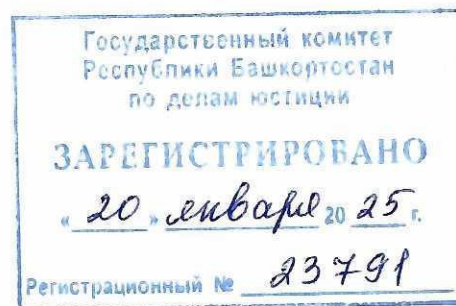 Государственный комитет
Республики Башкортостан
по делам юстиции
ЗАРЕГИСТРИРОВАНО
« 20 » января 20 25 г.
Регистрационный № 23791